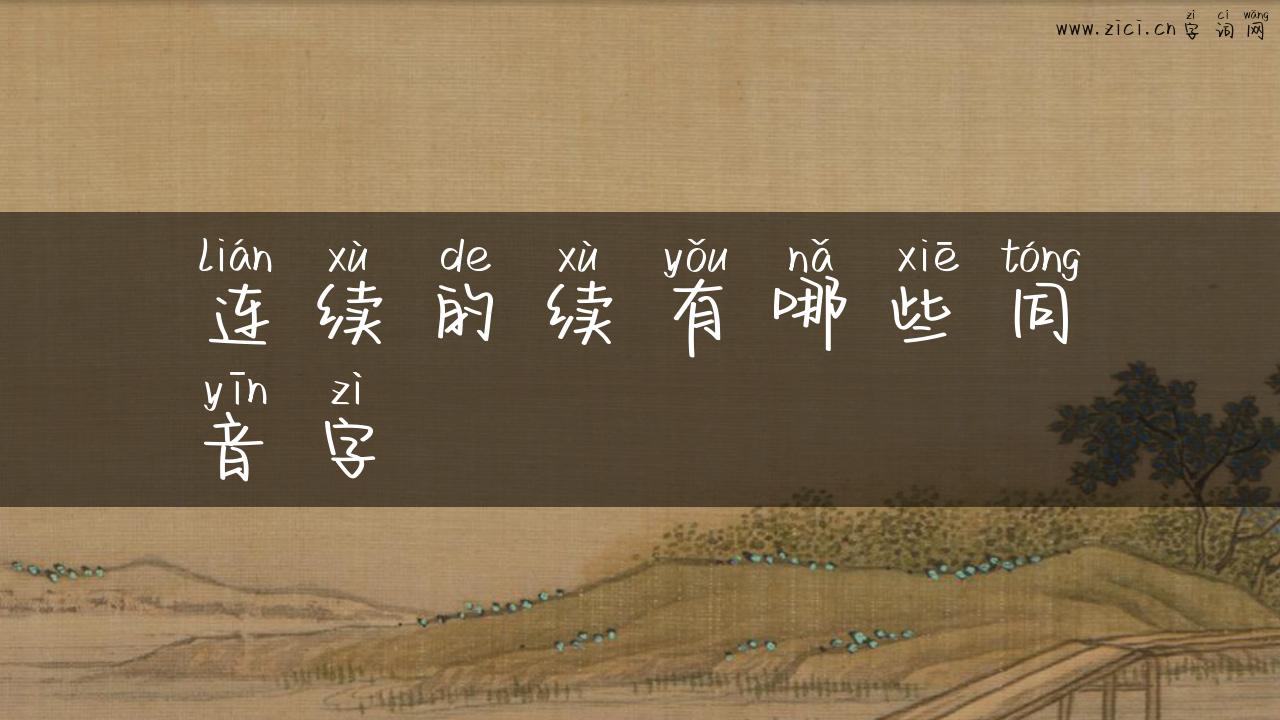 zì cí wǎng
www.zici.cn字词网
lián xù de xù yǒu nǎ xiē tóng
连续的续有哪些同
yīn zì
音字